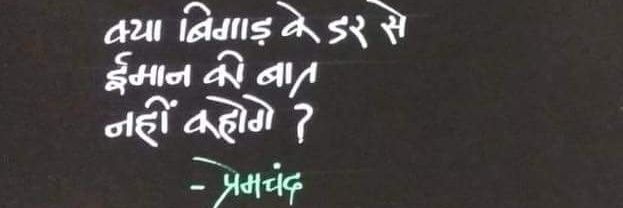 क्या बिगाड़ के डर से
ईमान की बात
नहीं कहोगे ?
- प्रेमचंद